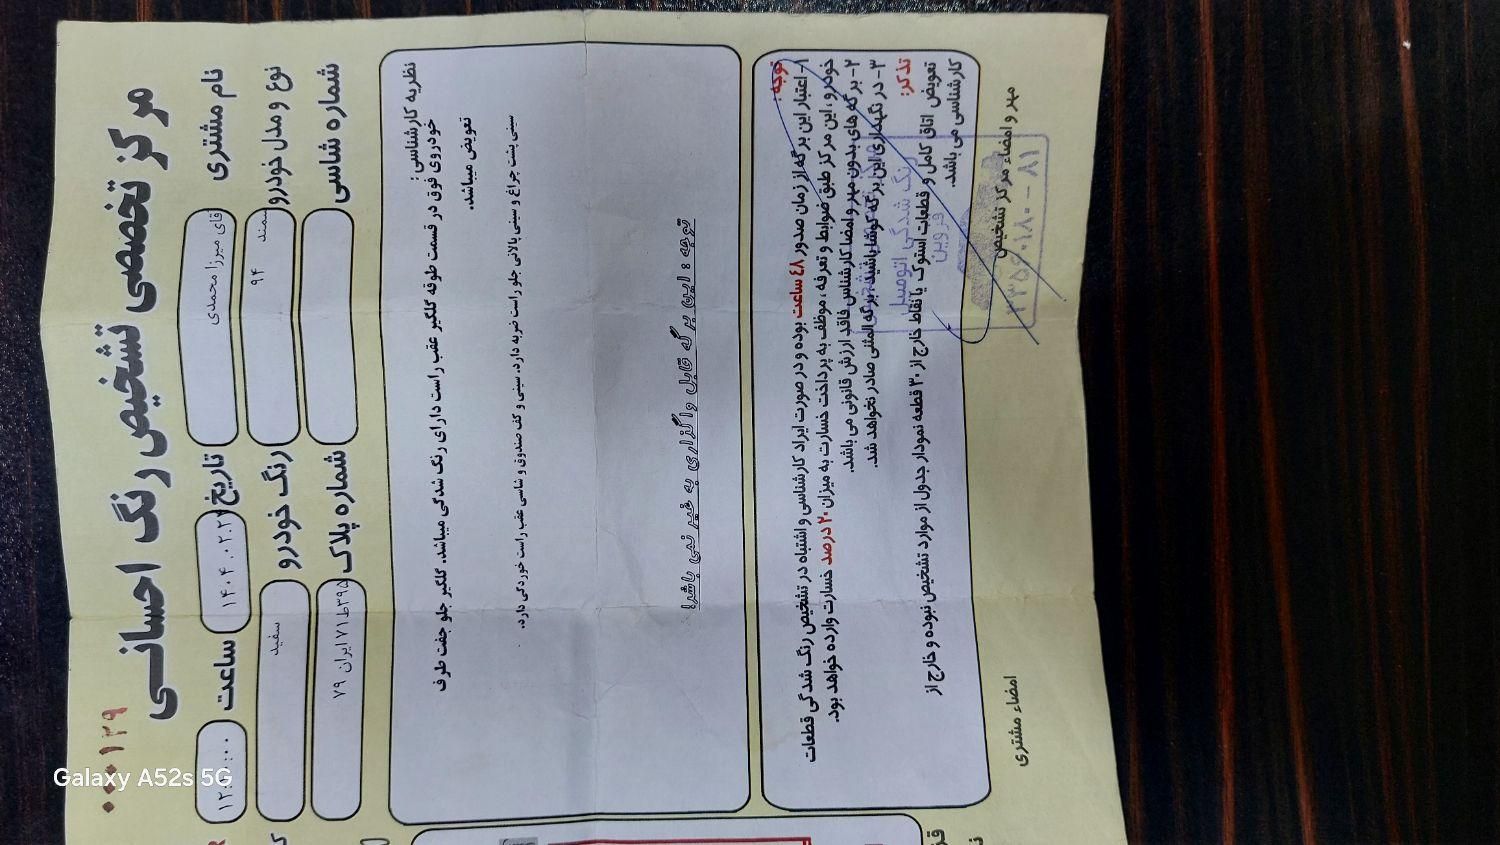 ۰۰۰۱۲۹
مرکز تخصصی تشخیص رنگ احسانی
نام مشتری
قای میرزا محمدی
تاریخ
۱۴۰۴.۰۲.۲
ساعت
۱۲:۰۰:۰۰
نوع و مدل خودرو
سمند
۹۴
رنگ خودرو
سفید
شماره شاسی
شماره پلاک
۳۹۵ط۷۱ ایران ۷۹
نظریه کارشناسی :
خودروی فوق در قسمت طوقه گلگیر عقب راست دارای رنگ شدگی میباشد. گلگیر جلو جفت طرف
تعویض میباشد.
سینی پشت چراغ و سینی بالائی جلو راست ضربه دارد. سینی و کف صندوق و شاسی عقب راست خوردگی دارد.
توجه : این برگه قابل واگذاری به غیر نمی باشد!
توجه :
۱- اعتبار این برگه از زمان صدور ٤٨ ساعت بوده و در صورت ایراد کارشناسی و اشتباه در تشخیص رنگ شدگی قطعات
خودرو، این مرکز طبق ضوابط و تعرفه، موظف به پرداخت خسارت به میزان ۲۰ درصد خسارت وارده خواهد بود.
۲- برگه های بدون مهر و امضا کارشناس فاقد ارزش قانونی می باشد.
۳- در نگهداری این برگه کوشا باشید، برگه المثنی صادر نخواهد شد.
تذکر:
تعویض اتاق کامل و قطعات استوک یا نقاط خارج از ۳۰ قطعه نمودار جدول از موارد تشخیص نبوده و خارج از
کارشناسی می باشد.
رنگ شدگی اتومبیل
قزوین
۳۳۵۶۰۱۸۰-۸۱
مهر و امضاء مرکز تشخیص
امضاء مشتری
Galaxy A52s 5G